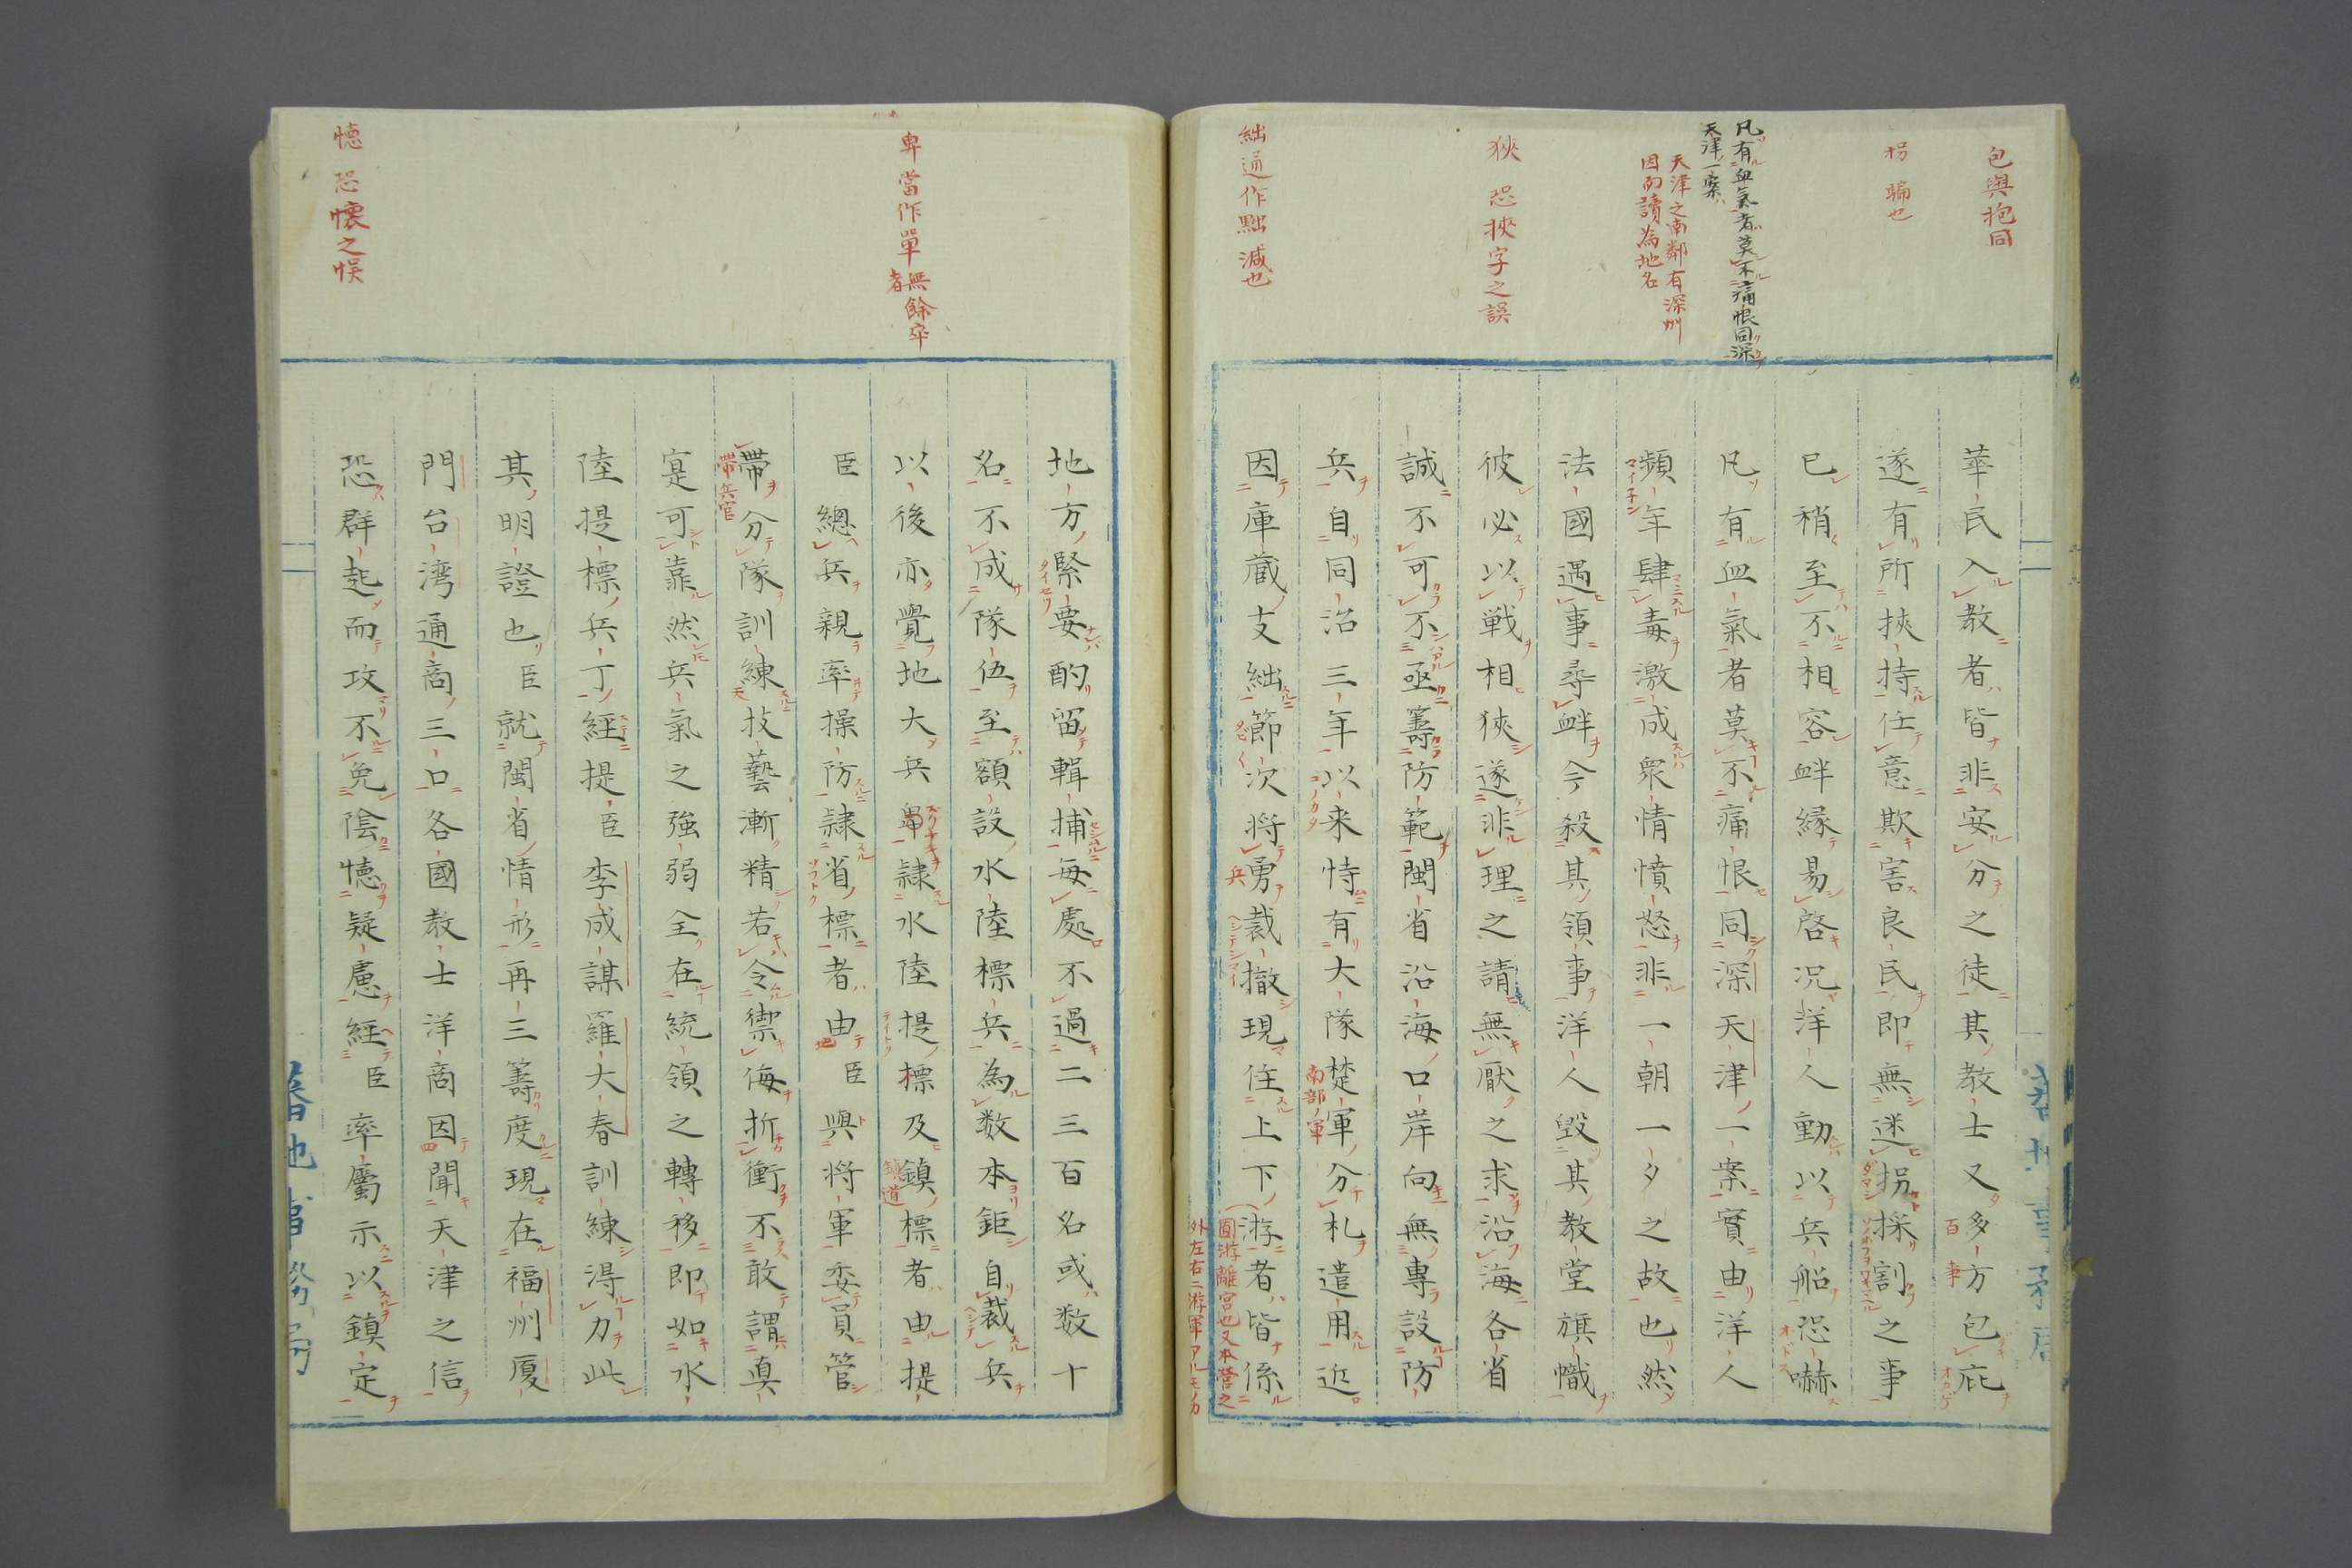 包與抱同
拐 騙也
凡有血氣者莫不痛恨同深
天津一案
天津之南鄰有深州
因而讀為地名
狹 恐挾字之誤
絀通作黜減也
華民入教者皆非安分之徒其教士又多方包庇
遂有所挾持任意欺害良民即無迷拐採割之事
已稍至不相容衅縁易啓况洋人動以兵船恐嚇
凡有血氣者莫不痛恨同深天津一案實由洋人
頻年肆毒激成衆情憤怒非一朝一夕之故也然
法國遇事尋衅今殺其領事洋人毀其教堂旗幟
彼必以戦相狹遂非理之請無厭之求沿海各省
誠不可不亟籌防範閩省沿海口岸向無專設防
兵自同治三年以来恃有大隊楚軍分札遣用近
因庫蔵支絀節次将勇裁撤現住上下游者皆係
南部ノ軍
圓游離宮也又本營之
外左右二游軍アルモカ
卑當作單無餘卒
者
憶 恐懐之悮
地方緊要酌留輯捕每處不過二三百名或数十
名不成隊伍至額設水陸標兵為数本鉅自裁兵
以後亦覺地大兵單隷水陸提標及鎮標者由提
臣總兵親率操防隷省標者由臣與将軍委員管
帶分隊訓練技藝漸精若令禦侮折衝不敢謂真
寔可靠然兵氣之強弱全在統領之轉移即如水
陸提標兵丁經提臣李成謀羅大春訓練淂力此
其明證也臣就閩省情形再三籌度現在福州厦
門台湾通商三口各國教士洋商因聞天津之信
恐群起而攻不免陰憶疑慮經臣率屬示以鎮定
帶兵官
蕃地事務局